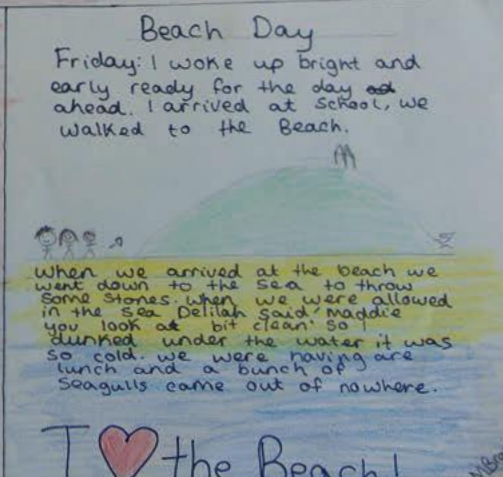 Beach Day
Friday: I woke up bright and
early ready for the day
ahead. I arrived at School, we
walked to the Beach.
when we arrived at the beach we
went down to the sea to throw
some stones. when we were allowed
in the sea Delilah said 'maddie
you look at bit clean' so I
dunked under the water it was
so cold. we were having are
lunch and a bunch of
Seagulls came out of nowhere.
I ❤ the Beach!